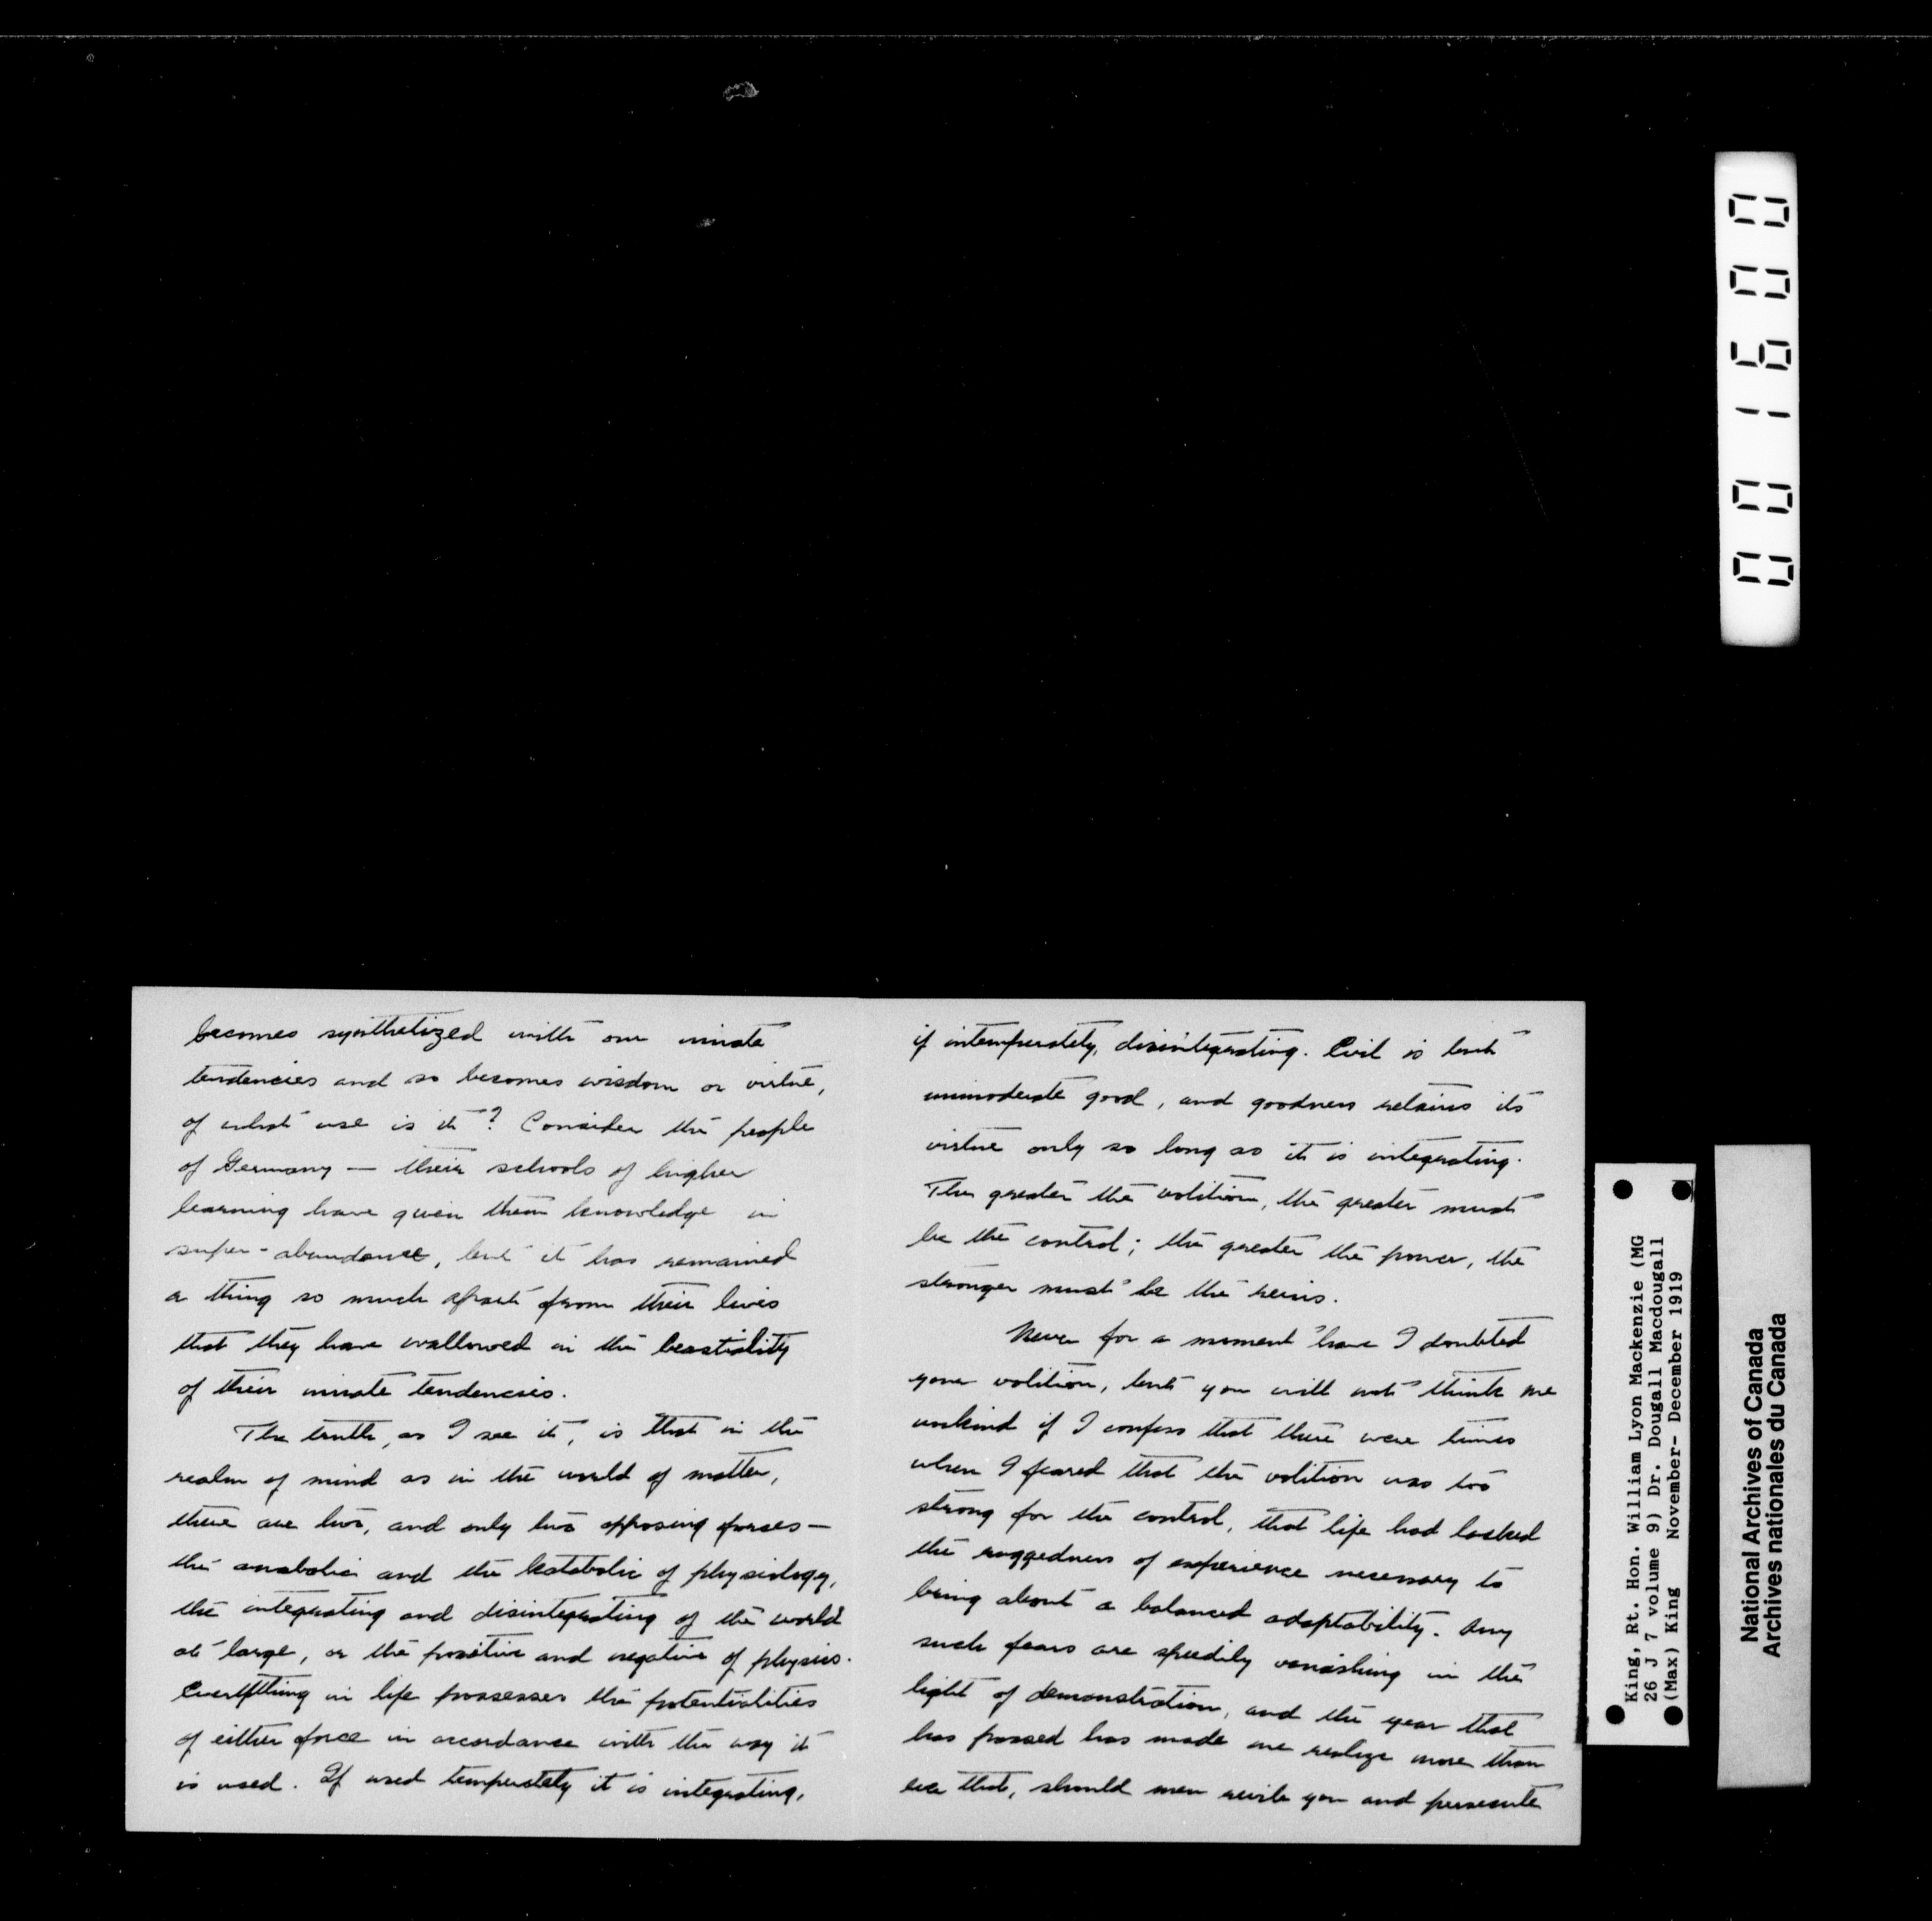 becomes synthetized with our innate
tendencies and so becomes wisdom or virtue,
of what use is it? Consider the people
of Germany — their schools of higher
learning have given them knowledge in
super-abundance, but it has remained
a thing so much apart from their lives
that they have wallowed in the beastiality
of their innate tendencies.
The truth, as I see it, is that in the
realm of mind as in the world of matter,
there are two, and only two opposing forces —
the anabolic and the katabolic of physiology,
the integrating and disintegrating of the world
at large, or the positive and negative of physics.
Everything in life possesses the potentialities
of either force in accordance with the way it
is used. If used temperately it is integrating,
if intemperately, disintegrating. Evil is but
immoderate good, and goodness retains its
virtue only so long as it is integrating.
The greater the volition, the greater must
be the control; the greater the power, the
stronger must be the reins.
Never for a moment have I doubted
your volition, but you will not think me
unkind if I confess that there were times
when I feared that the volition was too
strong for the control, that life had lacked
the ruggedness of experience necessary to
bring about a balanced adaptability. Any
such fears are speedily vanishing in the
light of demonstration, and the year that
has passed has made me realize more than
ever that, should men revile you and persecute
001600
King, Rt. Hon. William Lyon Mackenzie (MG
26 J 7 volume 9) Dr. Dougall Macdougall
(Max) King November- December 1919
National Archives of Canada
Archives nationales du Canada